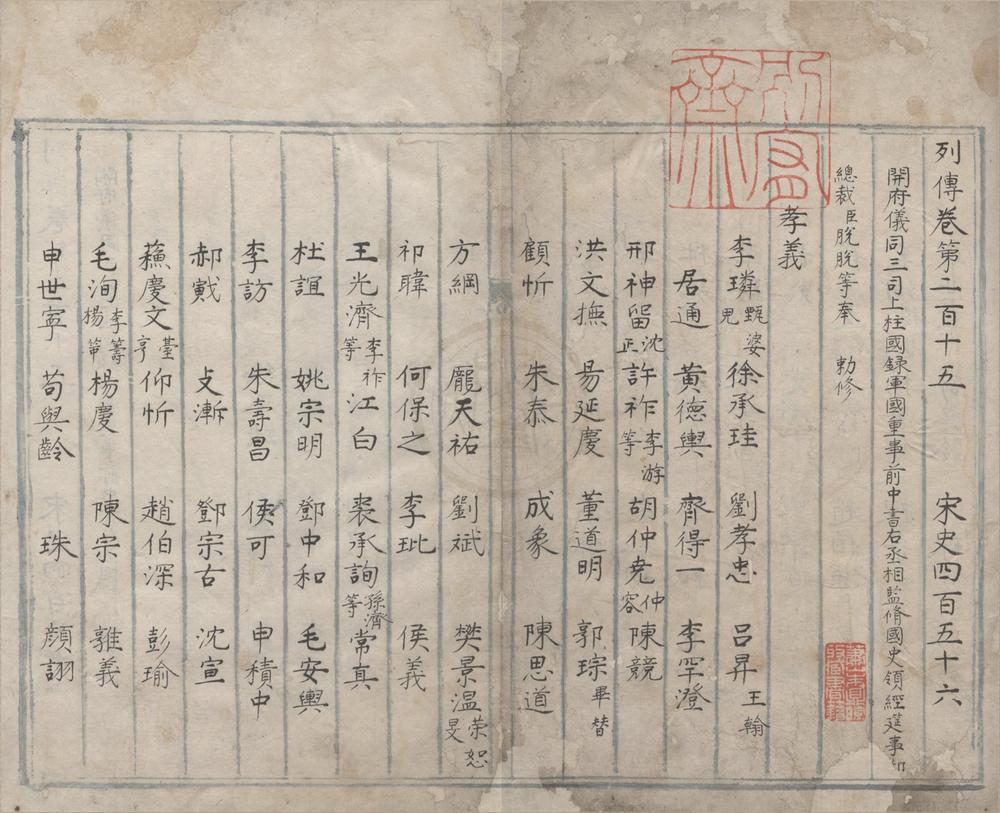 列傳卷第二百十五 宋史四百五十六
開府儀同三司上柱國錄軍國重事前中書右丞相監脩國史領經筵事
總裁臣脫脫等奉 勅修
孝義
李璘甄婆兒 徐承珪 劉孝忠 呂昇王翰
居通 黃德輿 齊得一 李罕澄
邢神留沈正 許祚李游等 胡仲堯仲容 陳競
洪文撫 易延慶 董道明 郭琮畢替
顧忻 朱泰 成象 陳思道
方綱 龐天祐 劉斌 樊景溫榮恕旻
祁暐 何保之 李玭 侯義
王光濟李祚等 江白 裘承詢孫濟等 常真
杜誼 姚宗明 鄧中和 毛安輿
李訪 朱壽昌 侯可 申積中
郝戭 支漸 鄧宗古 沈宣
蘇慶文臺亨 仰忻 趙伯深 彭瑜
毛洵李籌楊芾 楊慶 陳宗 郭義
申世寧 苟與齡 朱珠 顏詡